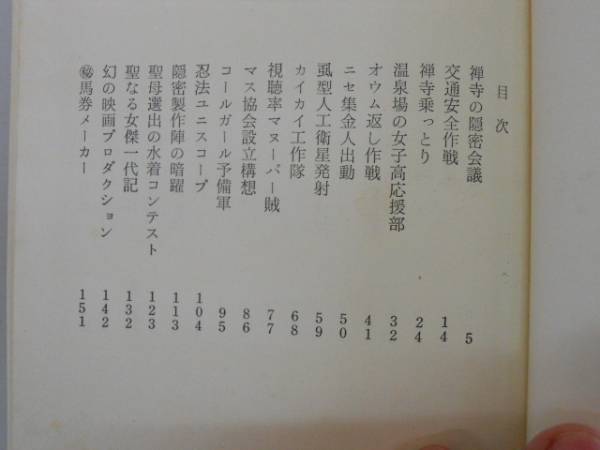 目次
禅寺の隠密会議 5
交通安全作戦 14
禅寺乗っとり 24
温泉場の女子高応援部 32
オウム返し作戦 41
ニセ集金人出動 50
虱型人工衛星発射 59
カイカイ工作隊 68
視聴率マヌーバー賊 77
マス協会設立構想 86
コールガール予備軍 95
忍法ユニスコープ 104
隠密製作陣の暗躍 113
聖母選出の水着コンテスト 123
聖なる女傑一代記 132
幻の映画プロダクション 142
㊙馬券メーカー 151